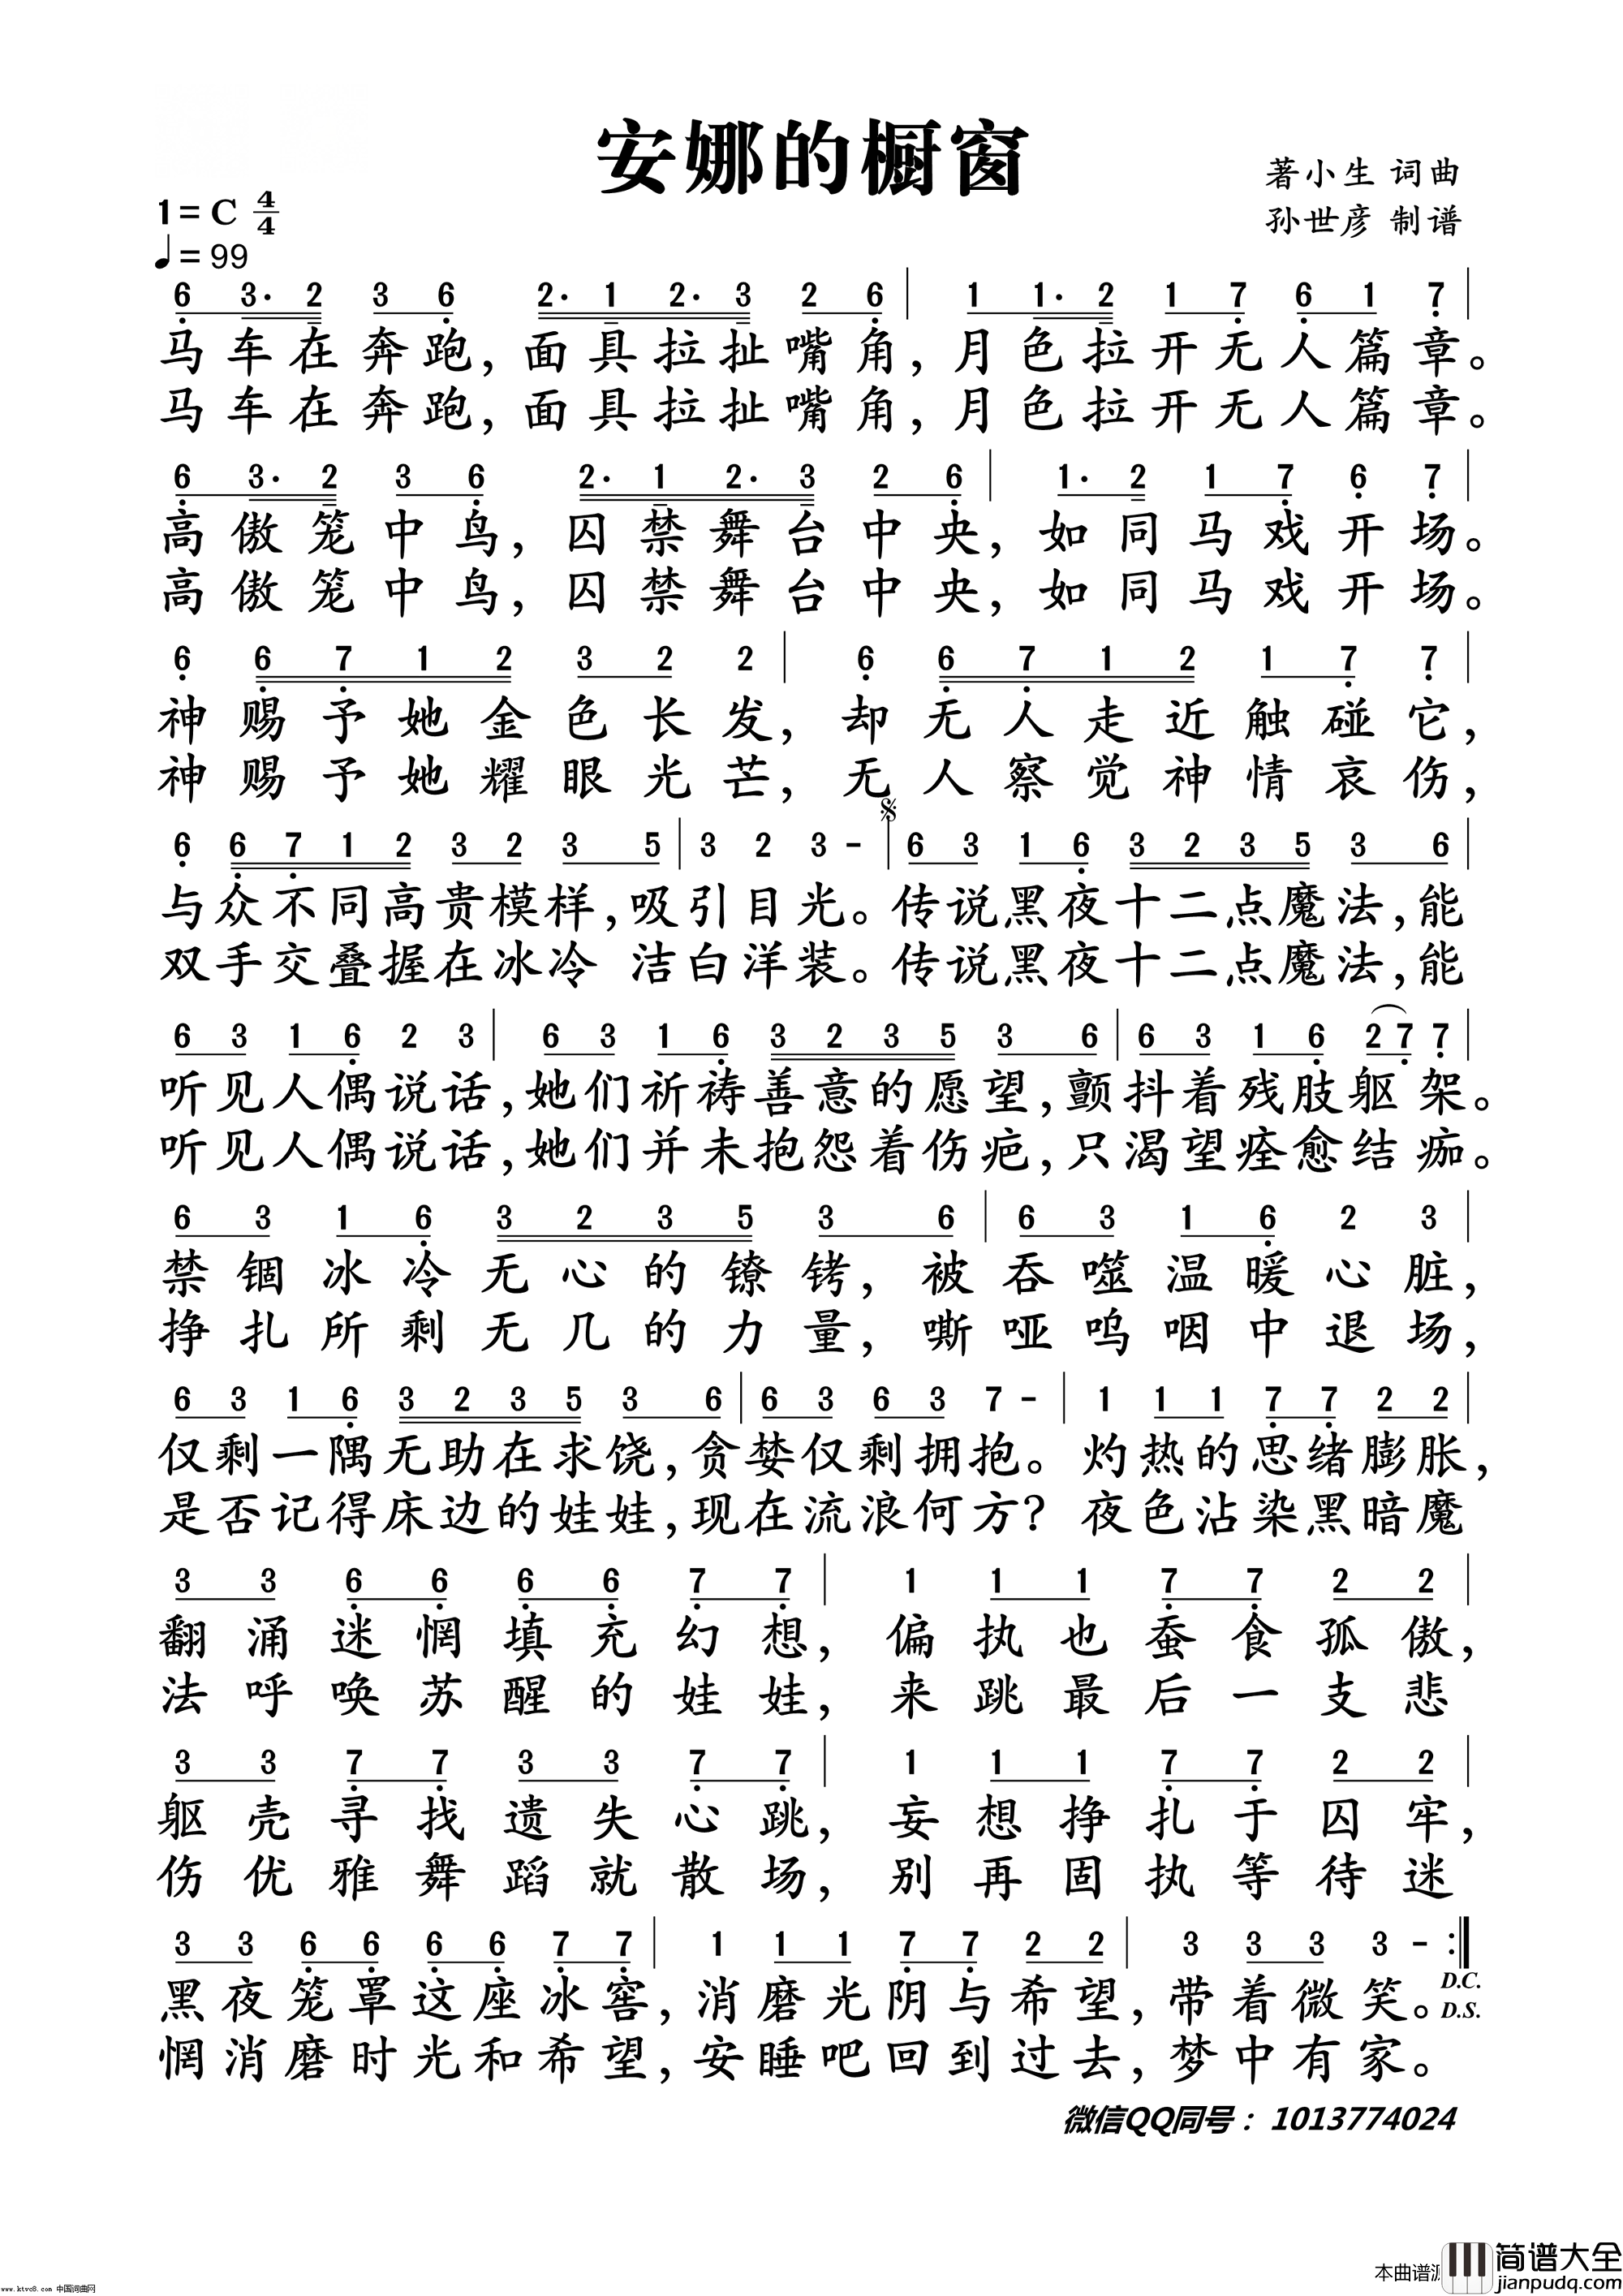 安娜的橱窗
著小生 词曲
1=C 4/4
孙世彦 制谱
♩=99
6 3· 2 3 6 2· 1 2· 3 2 6 | 1 1· 2 1 7 6 1 7 |
马车在奔跑，面具拉扯嘴角，月色拉开无人篇章。
马车在奔跑，面具拉扯嘴角，月色拉开无人篇章。
6 3· 2 3 6 2· 1 2· 3 2 6 | 1· 2 1 7 6 7 |
高傲笼中鸟，囚禁舞台中央，如同马戏开场。
高傲笼中鸟，囚禁舞台中央，如同马戏开场。
6 6 7 1 2 3 2 2 | 6 6 7 1 2 1 7 7 |
神赐予她金色长发，却无人走近触碰它，
神赐予她耀眼光芒，无人察觉神情哀伤，
6 6 7 1 2 3 2 3 5 | 3 2 3 - | 6 3 1 6 3 2 3 5 3 6 |
与众不同高贵模样，吸引目光。传说黑夜十二点魔法，能
双手交叠握在冰冷 洁白洋装。传说黑夜十二点魔法，能
6 3 1 6 2 3 | 6 3 1 6 3 2 3 5 3 6 | 6 3 1 6 2 7 7 |
听见人偶说话，她们祈祷善意的愿望，颤抖着残肢躯架。
听见人偶说话，她们并未抱怨着伤疤，只渴望痊愈结痂。
6 3 1 6 3 2 3 5 3 6 | 6 3 1 6 2 3 |
禁锢冰冷无心的镣铐，被吞噬温暖心脏，
挣扎所剩无几的力量，嘶哑呜咽中退场，
6 3 1 6 3 2 3 5 3 6 | 6 3 6 3 7 - | 1 1 1 7 7 2 2 |
仅剩一隅无助在求饶，贪婪仅剩拥抱。灼热的思绪膨胀，
是否记得床边的娃娃，现在流浪何方？夜色沾染黑暗魔
3 3 6 6 6 6 7 7 | 1 1 1 7 7 2 2 |
翻涌迷惘填充幻想，偏执也蚕食孤傲，
法呼唤苏醒的娃娃，来跳最后一支悲
3 3 7 7 3 3 7 7 | 1 1 1 7 7 2 2 |
躯壳寻找遗失心跳，妄想挣扎于囚牢，
伤优雅舞蹈就散场，别再固执等待迷
3 3 6 6 6 6 7 7 | 1 1 1 7 7 2 2 | 3 3 3 3 - :|
黑夜笼罩这座冰窖，消磨光阴与希望，带着微笑。D.C.
D.S.
惘消磨时光和希望，安睡吧回到过去，梦中有家。
微信QQ同号：1013774024
本曲谱源
简谱大全
jianpudq.com
www.ktvc8.com 中国词曲网